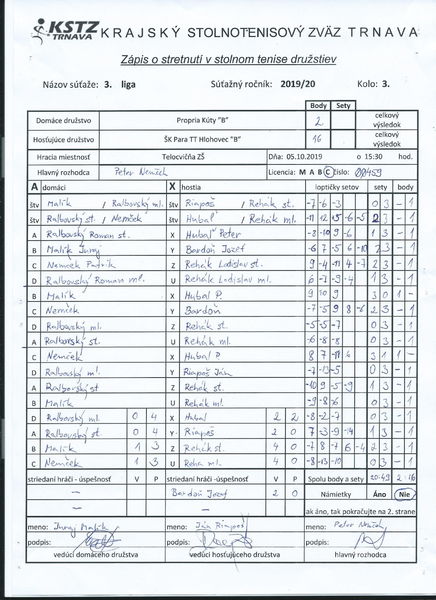 KSTZ TRNAVA KRAJSKÝ STOLNOTENISOVÝ ZVÄZ TRNAVA
Zápis o stretnutí v stolnom tenise družstiev
Názov súťaže: 3. liga Súťažný ročník: 2019/20 Kolo: 3.
Body Sety
Domáce družstvo Propria Kúty "B" 2 celkový výsledok
Hosťujúce družstvo ŠK Para TT Hlohovec "B" 16 celkový výsledok
Hracia miestnosť Telocvičňa ZŠ Dňa: 05.10.2019 o 15:30 hod.
Hlavný rozhodca Peter Nemček Licencia: M A B C číslo:
A domáci X hostia loptičky setov sety body
štv Malík / Ralbovský ml. štv Riapoš / Rehák st. -7 -6 -3 03 -1
štv Ralbovský st. / Nemček štv Hubal / Rehák ml. 23 -1
A Ralbovský Roman st. X Hubal Peter -8 -10 9 -6 13 -1
B Malík Juraj Y Bardoň Jozef -6 7 5 6 -10 23 -1
C Nemček Z Rehák Ladislav st. 9 -4 -11 4 -7 23 -1
D Ralbovský Roman ml. U Rehák Ladislav ml. 13 -1
B Malík X Hubal P. 9 10 9 30 1-
C Nemček Y Bardoň -7 -5 9 8 -6 23 -1
D Ralbovský ml. Z Rehák st. -5 -5 -7 03 -1
A Ralbovský st. U Rehák ml. -6 -8 -8 03 -1
C Nemček X Hubal P. 8 7 -11 4 31 1-
D Ralbovský ml. Y Riapoš Ján -7 -13 -5 03 -1
A Ralbovský st Z Rehák st. -10 9 -5 -9 13 -1
B Malík U Rehák ml. -9 -8 -6 03 -1
D Ralbovský ml. 0 4 X Hubal 2 2 -8 -2 -7 03 -1
A Ralbovský st. 0 4 Y Riapoš 2 0 7 -3 -9 -14 13 -1
B Malík 1 3 Z Rehák st. 4 0 -7 8 -7 6 -4 23 -1
C Nemček 1 3 U Reha ml. 4 0 -8 -13 -10 03 -1
striedaní hráči - úspešnosť V P striedaní hráči - úspešnosť V P Spolu body a sety 20:49 2:16
Bardoň Jozef 2 0 Námietky Áno Nie
ak áno, tak pokračujte na 2. strane
meno: Juraj Malík meno: Ján Riapoš meno: Peter Nemček
podpis: podpis: podpis:
vedúci domáceho družstva vedúci hosťujúceho družstva hlavný rozhodca